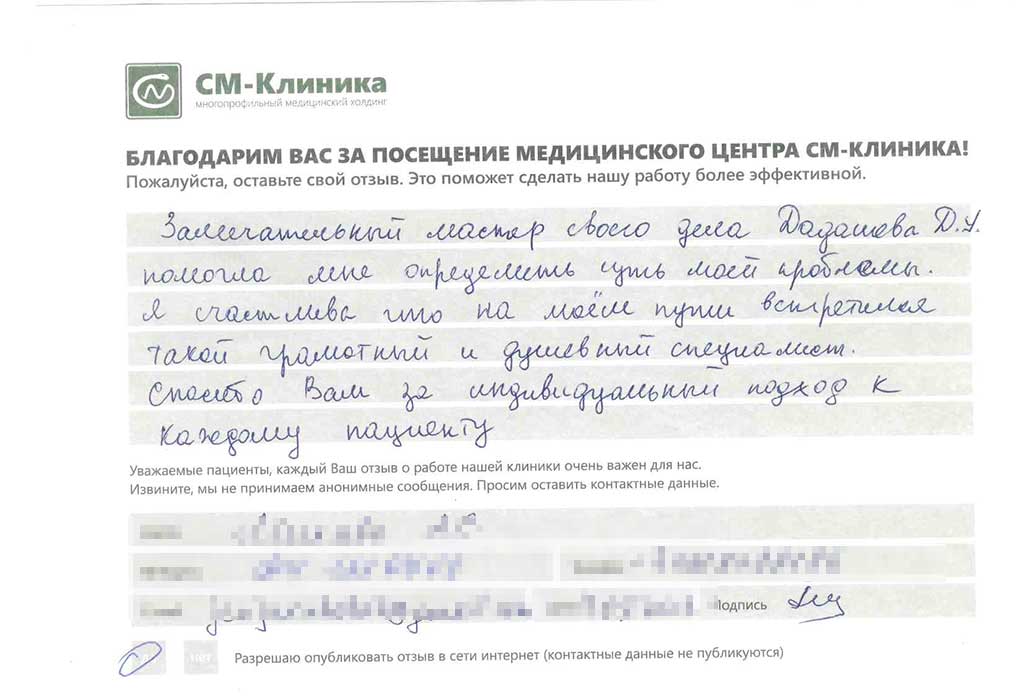 СМ-Клиника
многопрофильный медицинский холдинг
БЛАГОДАРИМ ВАС ЗА ПОСЕЩЕНИЕ МЕДИЦИНСКОГО ЦЕНТРА СМ-КЛИНИКА!
Пожалуйста, оставьте свой отзыв. Это поможет сделать нашу работу более эффективной.
Замечательный мастер своего дела Дадашева Д.У.
помогла мне определить суть моей проблемы.
Я счастлива что на моём пути встретился
такой грамотный и душевный специалист.
Спасибо Вам за индивидуальный подход к
каждому пациенту
Уважаемые пациенты, каждый Ваш отзыв о работе нашей клиники очень важен для нас.
Извините, мы не принимаем анонимные сообщения. Просим оставить контактные данные.
Подпись
Разрешаю опубликовать отзыв в сети интернет (контактные данные не публикуются)